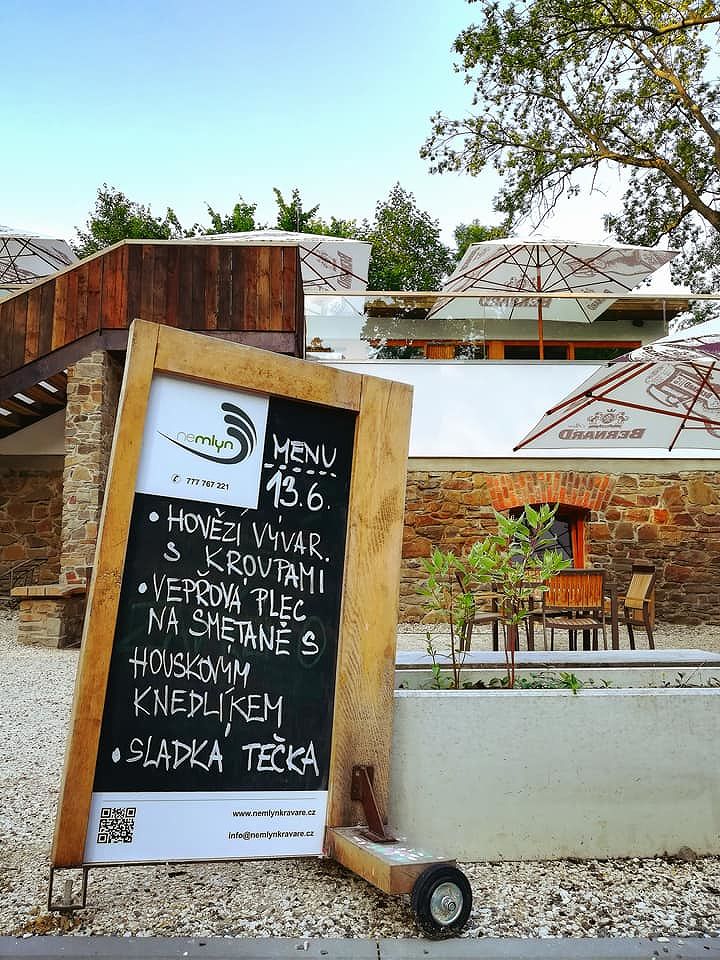 nemlyn
✆ 777 767 221
MENU
13.6.
• HOVĚZÍ VÝVAR.
S KROUPAMI
• VEPŘOVÁ PLEC
NA SMETANĚ S
HOUSKOVÝM
KNEDLÍKEM
• SLADKÁ TEČKA
www.nemlynkravare.cz
info@nemlynkravare.cz
BERNARD